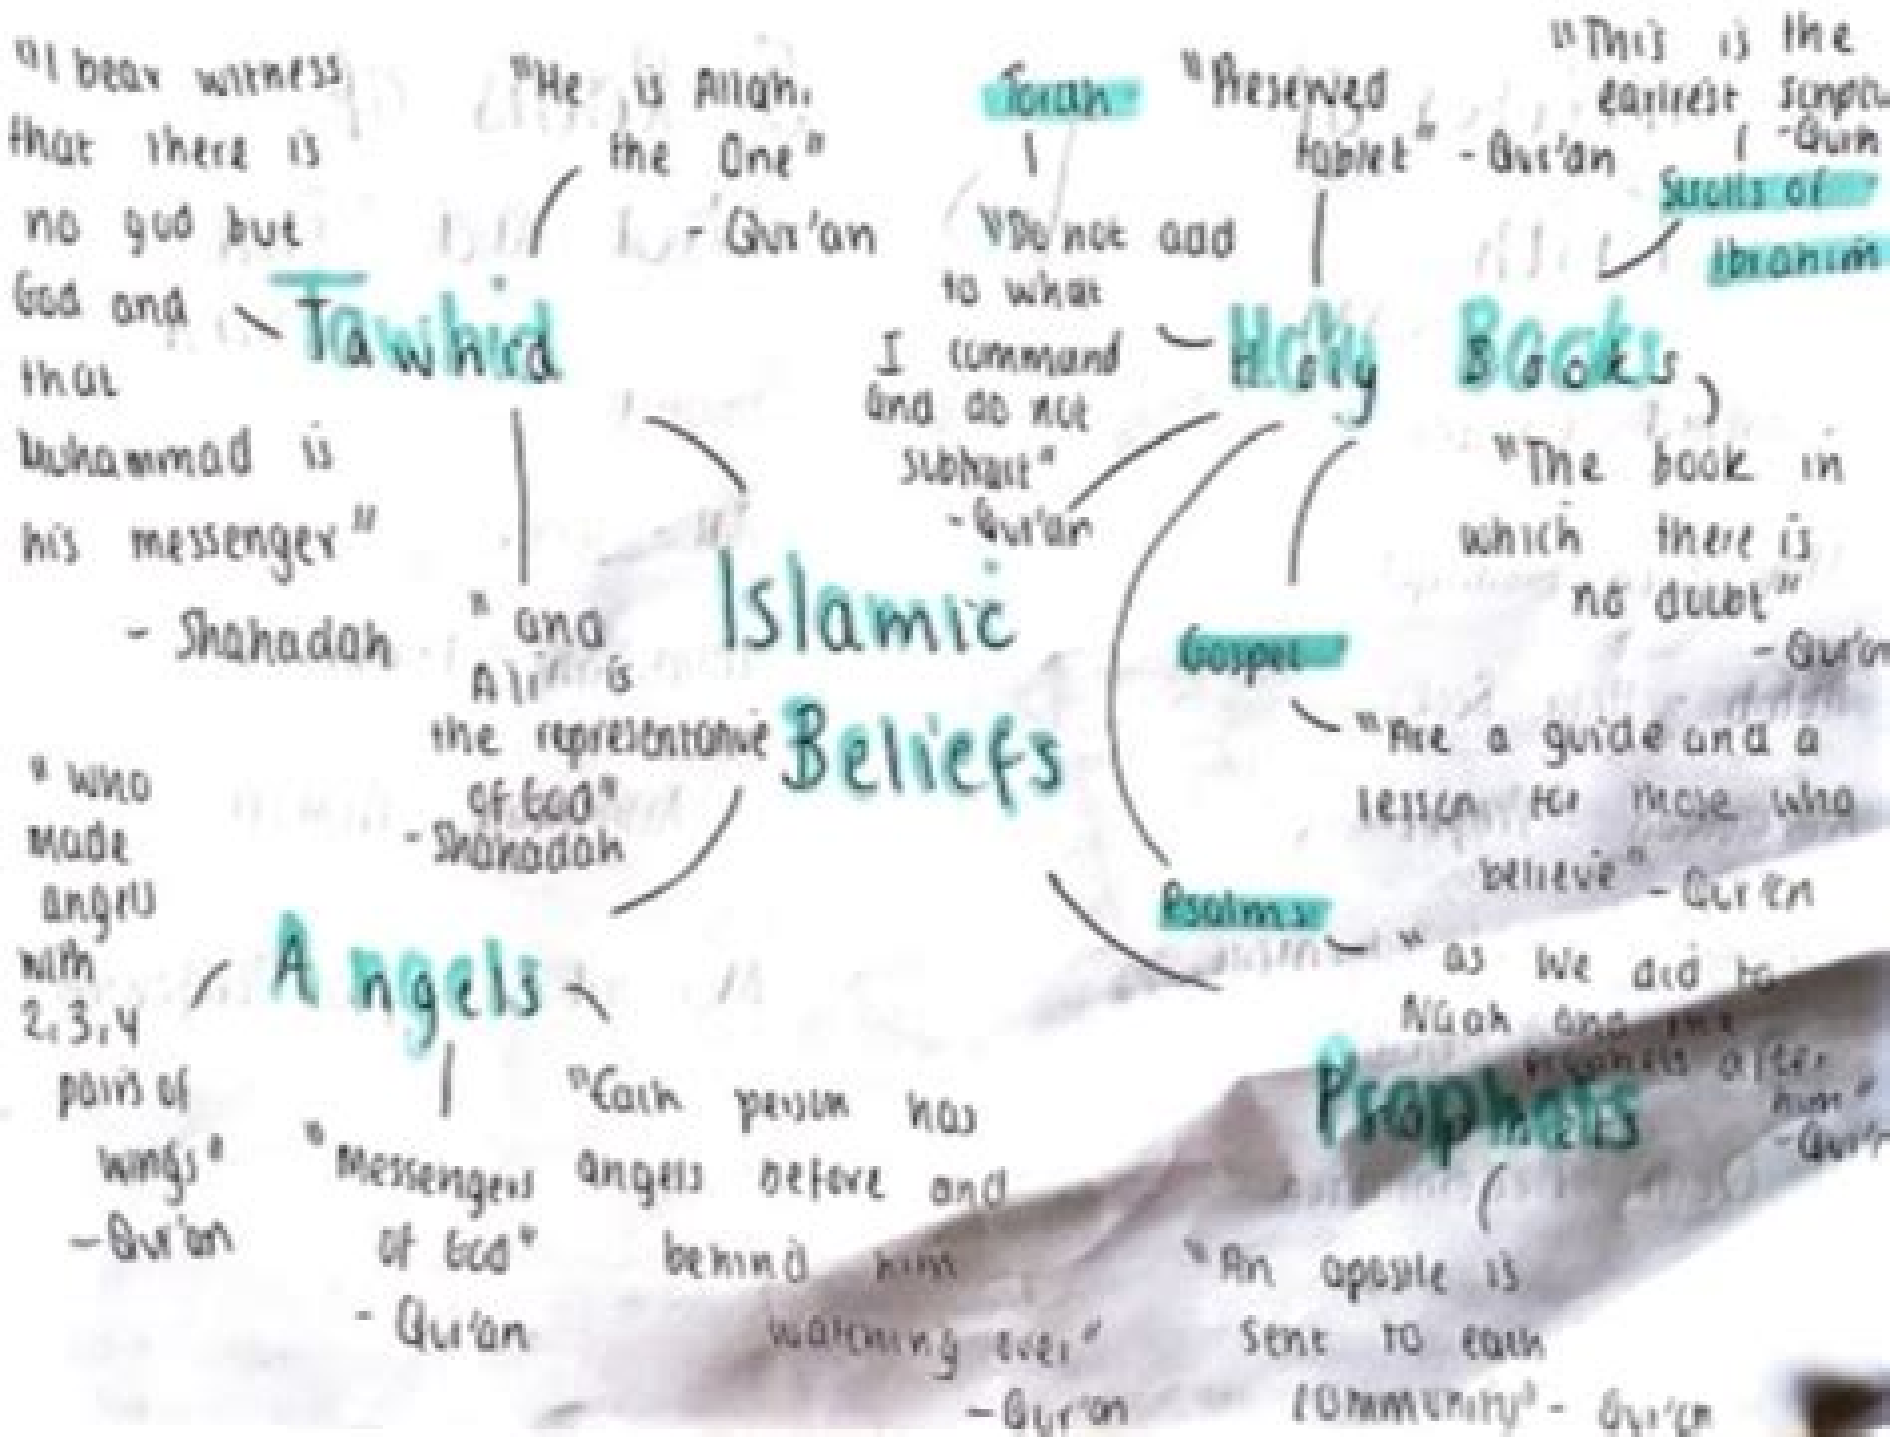 "I bear witness
that there is
no god but
God and
that
Muhammad is
his messenger"
- Shahadah
"He is Allah,
the One"
- Qur'an
Tawhid
"and
Ali is
the representative
of God"
- Shahadah
Islamic
Beliefs
Torah
"Do not add
to what
I command
and do not
subtract"
- Qur'an
"Preserved
tablet" - Qur'an
"This is the
earliest
Scrolls of
Ibrahim
Holy Books
"The book in
which there is
no doubt"
- Qur'an
Gospel
"Are a guide and a
lesson for those who
believe" - Qur'an
Psalms
"as we did to
Noah and the
prophets after
him"
"who
made
angels
with
2,3,4
pairs of
wings"
- Qur'an
Angels
"Messengers
of God"
- Qur'an
"Each person has
angels before and
behind him
watching over"
- Qur'an
Prophets
"An apostle is
sent to each
community" - Qur'an